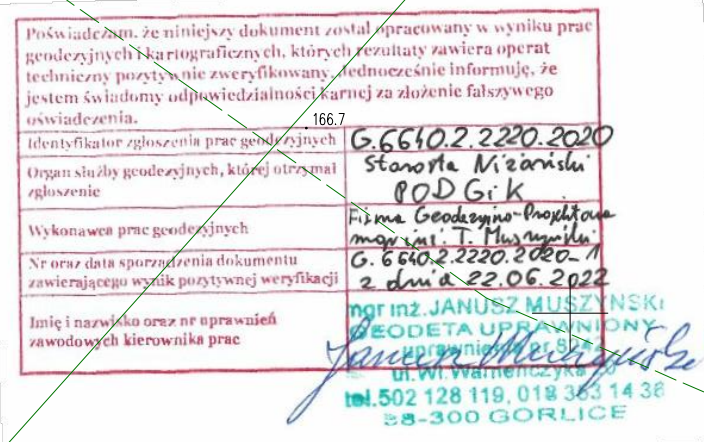 Poświadczam, że niniejszy dokument został opracowany w wyniku prac
geodezyjnych i kartograficznych, których rezultaty zawiera operat
techniczny pozytywnie zweryfikowany. Jednocześnie informuję, że
jestem świadomy odpowiedzialności karnej za złożenie fałszywego
oświadczenia.
166.7
Identyfikator zgłoszenia prac geodezyjnych G.6640.2.2220.2020
Organ służby geodezyjnych, której otrzymał zgłoszenie Starosta Niżański
PODGiK
Wykonawca prac geodezyjnych Firma Geodezyjno-Projektowa
mgr inż. T. Muszyński
Nr oraz data sporządzenia dokumentu G.6640.2.2220.2020-1
zawierającego wynik pozytywnej weryfikacji z dnia 22.06.2022
Imię i nazwisko oraz nr uprawnień
zawodowych kierownika prac
mgr inż. JANUSZ MUSZYŃSKI
GEODETA UPRAWNIONY
uprawnienia nr
ul. Wł. Warneńczyka
tel. 502 128 119, 018 353 14 36
38-300 GORLICE